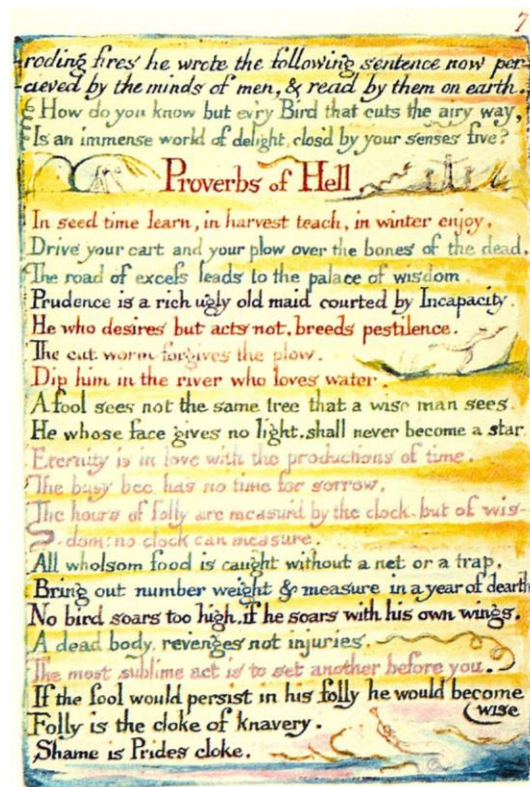 7
-roding fires he wrote the following sentence now per-
-cieved by the minds of men, & read by them on earth.
How do you know but ev'ry Bird that cuts the airy way,
Is an immense world of delight, clos'd by your senses five?
Proverbs of Hell
In seed time learn, in harvest teach, in winter enjoy.
Drive your cart and your plow over the bones of the dead.
The road of excess leads to the palace of wisdom
Prudence is a rich ugly old maid courted by Incapacity.
He who desires but acts not, breeds pestilence.
The cut worm forgives the plow.
Dip him in the river who loves water.
A fool sees not the same tree that a wise man sees.
He whose face gives no light, shall never become a star
Eternity is in love with the productions of time.
The busy bee has no time for sorrow.
The hours of folly are measur'd by the clock, but of wis-
-dom: no clock can measure.
All wholsom food is caught without a net or a trap.
Bring out number weight & measure in a year of dearth
No bird soars too high, if he soars with his own wings.
A dead body, revenges not injuries.
The most sublime act is to set another before you.
If the fool would persist in his folly he would become
wise
Folly is the cloke of knavery.
Shame is Prides cloke.